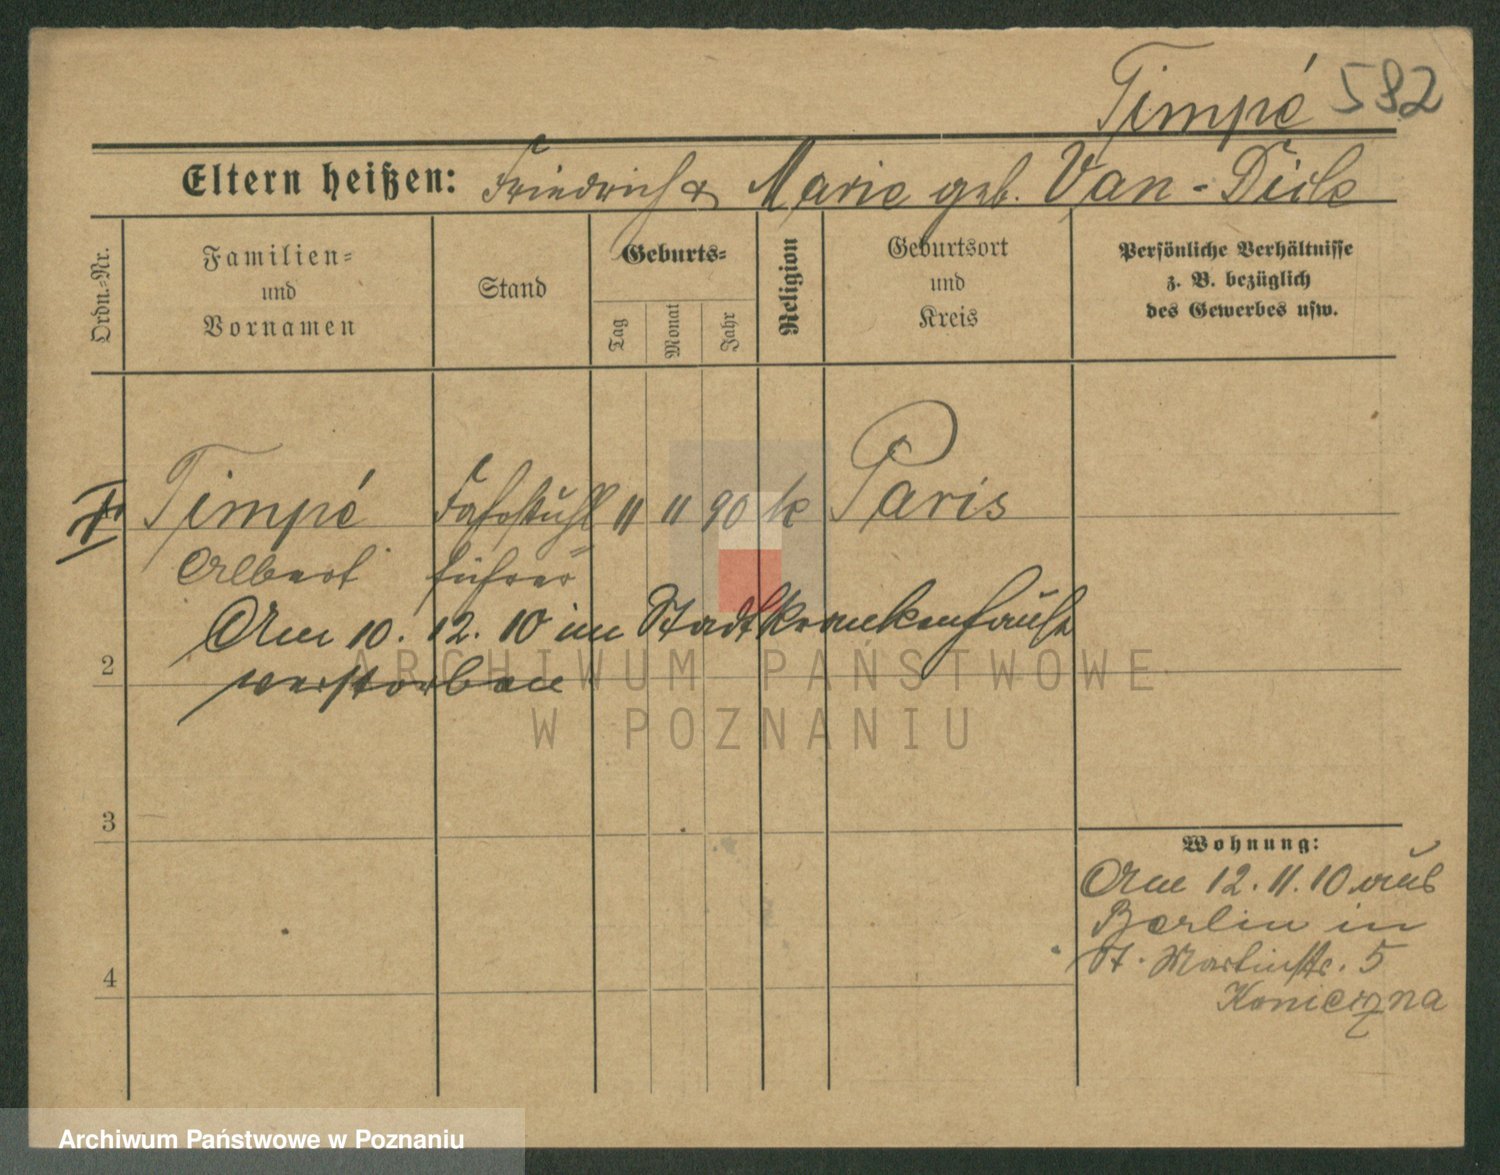 Timpé 582
Eltern heißen: Friedrich & Marie geb. Van-Dick
Ordn.-Nr.
Familien-
und
Vornamen
Stand
Geburts-
Tag
Monat
Jahr
Religion
Geburtsort
und
Kreis
Persönliche Verhältnisse
z. B. bezüglich
des Gewerbes usw.
Timpé Fahrstuhl " " 90 k Paris
Albert führer
Am 10. 12. 10 im Stadtkrankenhause
2
verstorben
ARCHIWUM PAŃSTWOWE
W POZNANIU
3
Wohnung:
Am 12. 11. 10 aus
Berlin in
St. Martinstr. 5
4
Konieczna
Archiwum Państwowe w Poznaniu